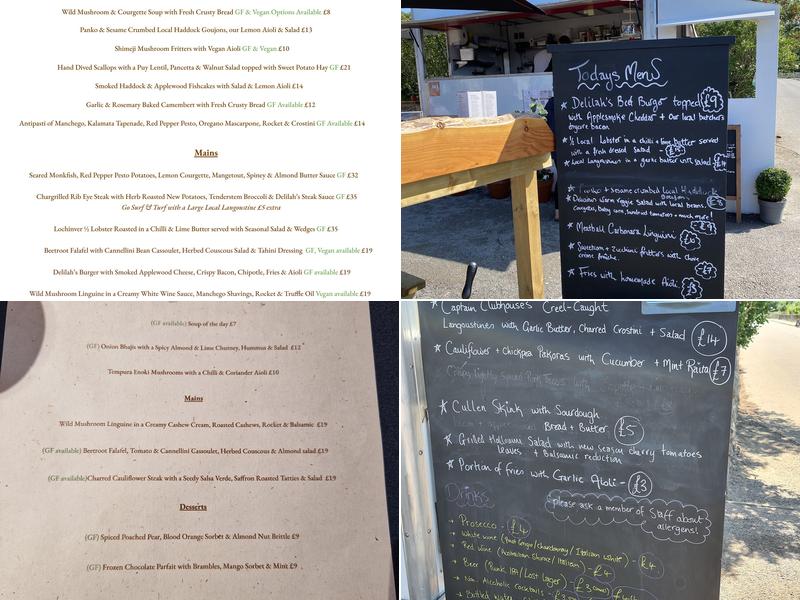 Wild Mushroom & Courgette Soup with Fresh Crusty Bread GF & Vegan Options Available £8
Panko & Sesame Crumbed Local Haddock Goujons, our Lemon Aioli & Salad £13
Shimeji Mushroom Fritters with Vegan Aioli GF & Vegan £10
Hand Dived Scallops with a Puy Lentil, Pancetta & Walnut Salad topped with Sweet Potato Hay GF £21
Smoked Haddock & Applewood Fishcakes with Salad & Lemon Aioli £14
Garlic & Rosemary Baked Camembert with Fresh Crusty Bread GF Available £12
Antipasti of Manchego, Kalamata Tapenade, Red Pepper Pesto, Oregano Mascarpone, Rocket & Crostini GF Available £14
Mains
Seared Monkfish, Red Pepper Pesto Potatoes, Lemon Courgette, Mangetout, Spiney & Almond Butter Sauce GF £32
Chargrilled Rib Eye Steak with Herb Roasted New Potatoes, Tenderstem Broccoli & Delilah's Steak Sauce GF £35
Go Surf & Turf with a Large Local Langoustine £5 extra
Lochinver ½ Lobster Roasted in a Chilli & Lime Butter served with Seasonal Salad & Wedges GF £35
Beetroot Falafel with Cannellini Bean Cassoulet, Herbed Couscous Salad & Tahini Dressing GF, Vegan available £19
Delilah's Burger with Smoked Applewood Cheese, Crispy Bacon, Chipotle, Fries & Aioli GF available £19
Wild Mushroom Linguine in a Creamy White Wine Sauce, Manchego Shavings, Rocket & Truffle Oil Vegan available £19
Todays Menu
Delilah's Beef Burger topped £9
with Applesmoke Cheddar + Our local butcher's
drycure bacon
½ Local Lobster in a chilli + lime butter served
with a fresh dressed Salad -
Local Langoustines in a garlic butter with salad £14
Panko + Sesame crumbed local Haddock
Goujons
Delicious warm veggie Salad with local beans,
courgettes, baby corn, sundried tomatoes + much more!
£8
Meatball Carbonara Linguini - £9
£10
Sweetcorn + zucchini fritters with chive
crème fraîche. - £7
Fries with homemade Aioli
£3
(GF available) Soup of the day £7
(GF) Onion Bhajis with a Spicy Almond & Lime Chutney, Hummus & Salad £12
Tempura Enoki Mushrooms with a Chilli & Coriander Aioli £10
Mains
Wild Mushroom Linguine in a Creamy Cashew Cream, Roasted Cashews, Rocket & Balsamic £19
(GF available) Beetroot Falafel, Tomato & Cannellini Cassoulet, Herbed Couscous & Almond salad £19
(GF available)Charred Cauliflower Steak with a Seedy Salsa Verde, Saffron Roasted Tatties & Salad £19
Desserts
(GF) Spiced Poached Pear, Blood Orange Sorbet & Almond Nut Brittle £9
(GF) Frozen Chocolate Parfait with Brambles, Mango Sorbet & Mint £9
Captain Clubhouse's Creel-Caught
Langoustines with Garlic Butter, Charred Crostini + Salad £14
Cauliflower + Chickpea Pakoras with Cucumber + Mint Raita £7
Cullen Skink with Sourdough
Bread + Butter £5
Grilled Halloumi Salad with new season cherry tomatoes
leaves + Balsamic reduction
Portion of Fries with Garlic Aioli - £3
Drinks
please ask a member of Staff about
allergens!
Prosecco - £4
White wine (Pinot Grigio/chardonnay/Italian white) - £4
Red wine (Australian Shiraz/Italian) - £4
Beer (Punk IPA/Lost lager) - £3
Non Alcoholic cocktails -
Bottled Water